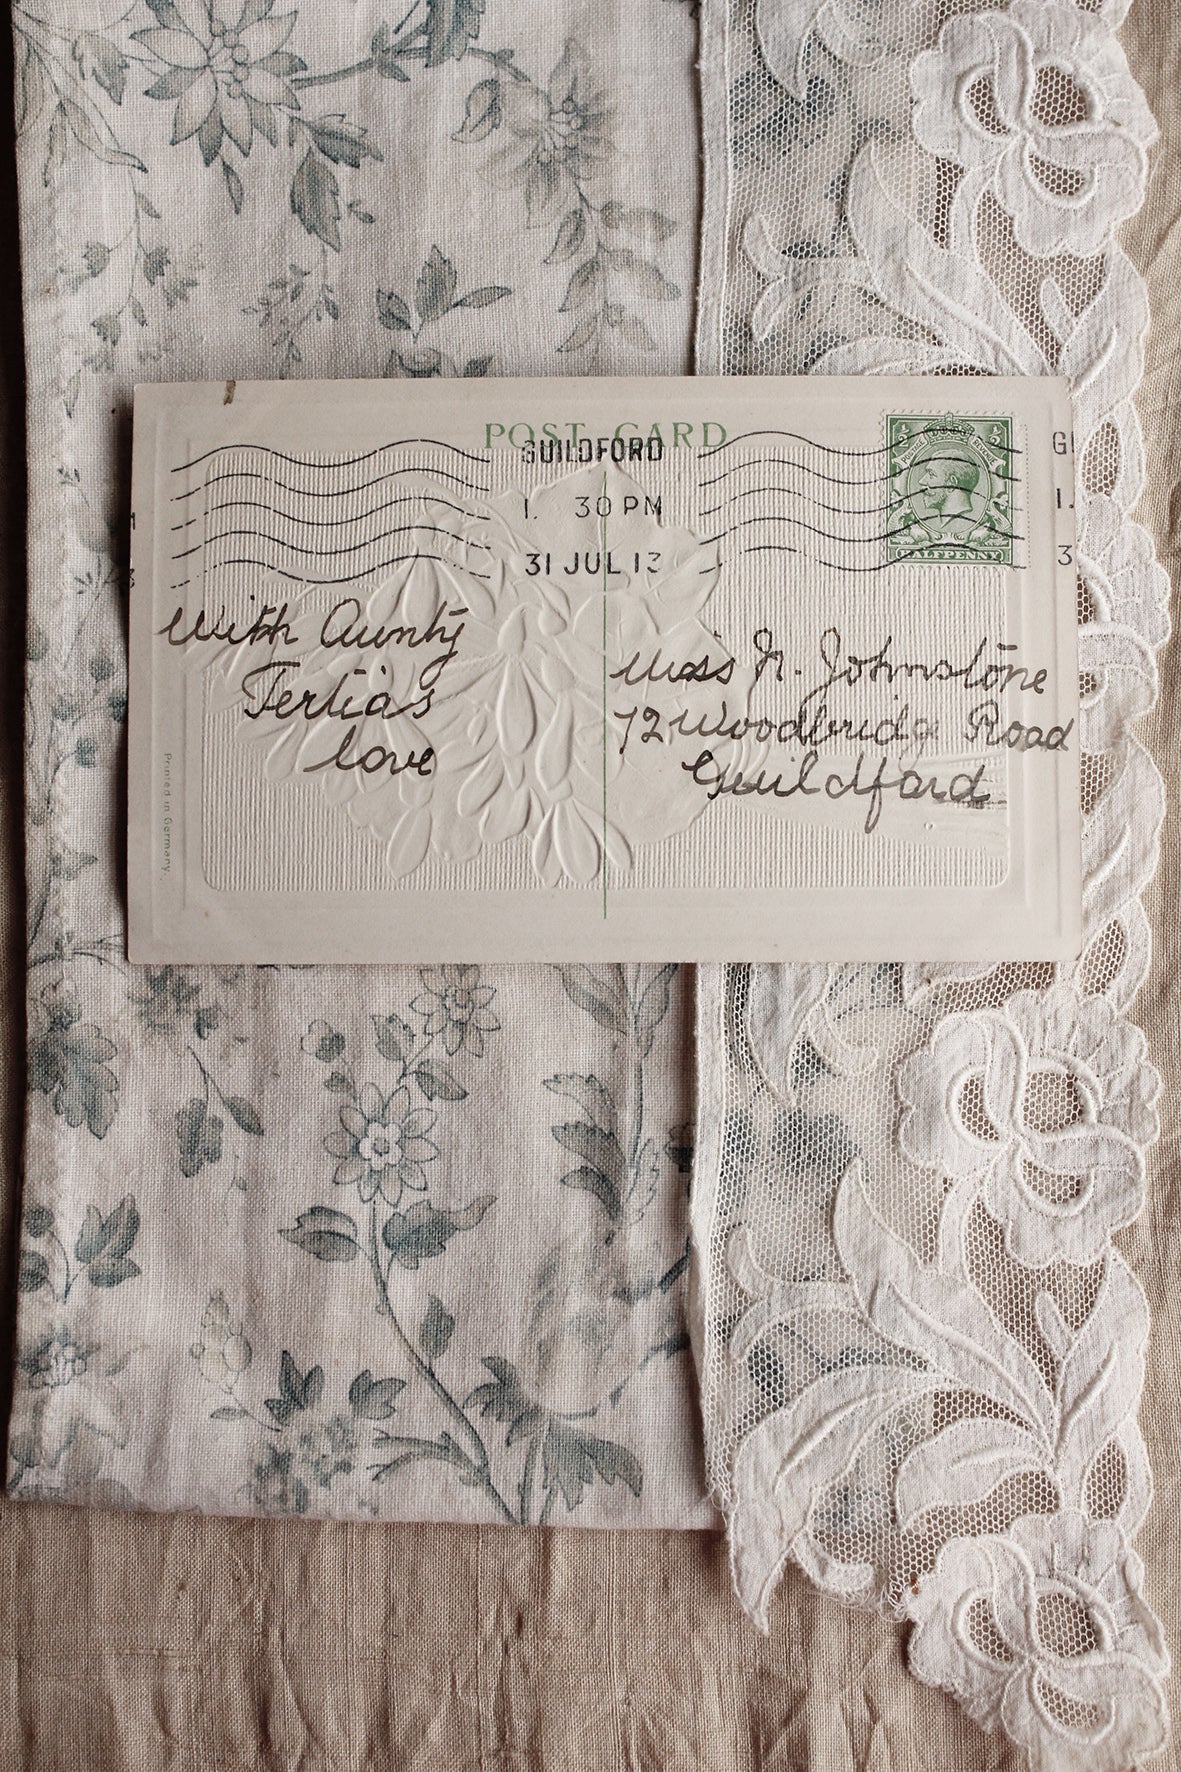 POST CARD
GUILDFORD
1. 30 PM
31 JUL 13
HALFPENNY
GU
1.
3
With Aunty
Tertia's
love
Miss N. Johnstone
72 Woodbridge Road
Guildford
Printed in Germany.